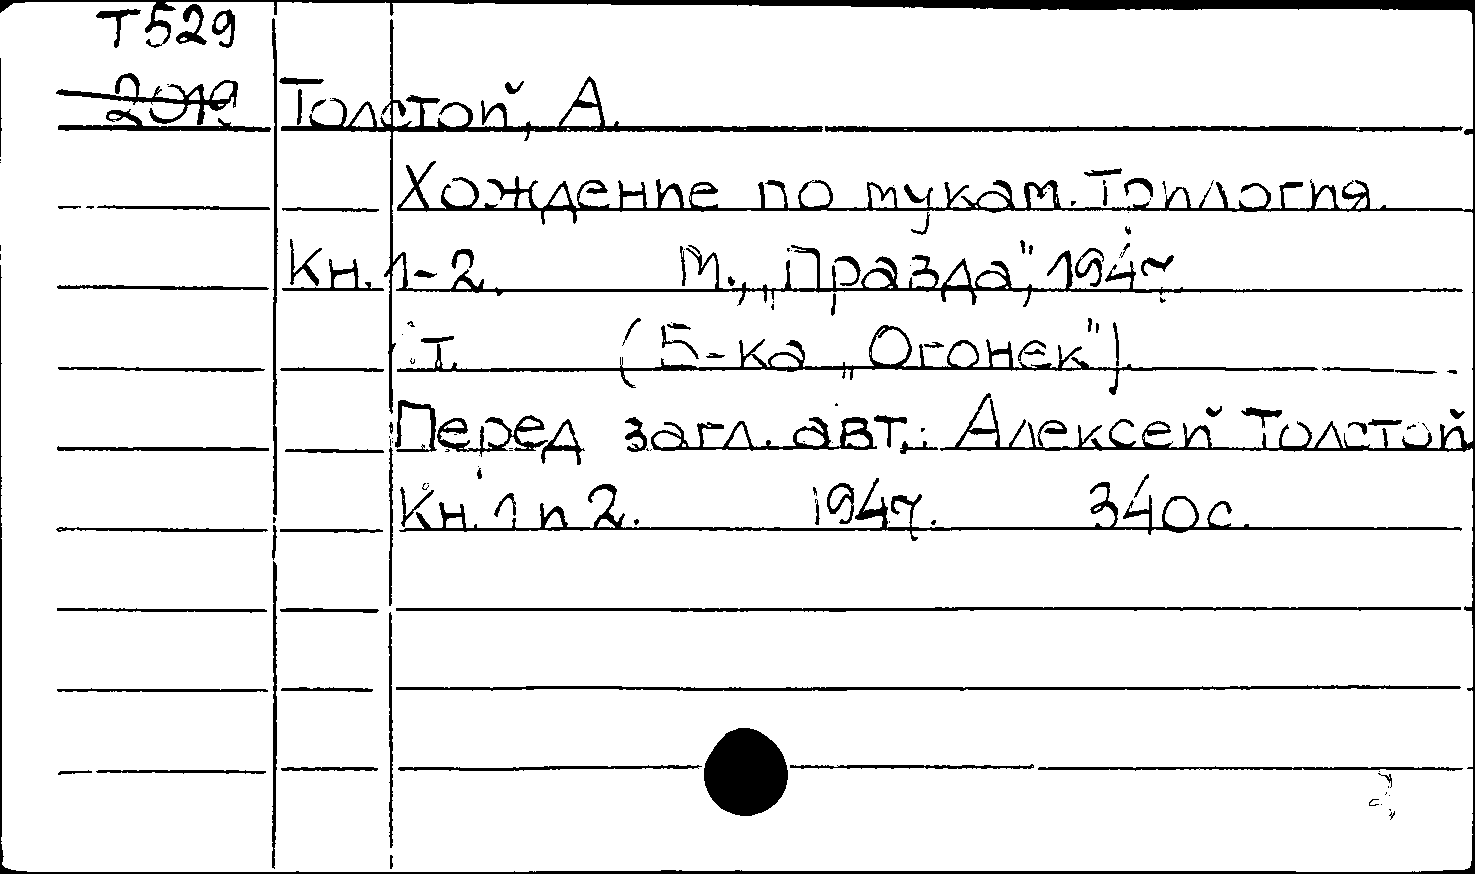 Т529
2019
Толстой, А.
Хождение по мукам. Трилогия.
Кн. 1-2. М., „Правда", 1947
т. (Б-ка „Огонек").
Перед загл. авт.: Алексей Толстой
Кн. 1 и 2. 1947. 340 с.